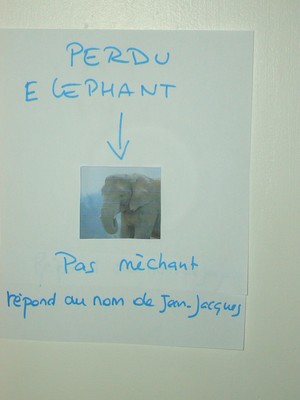 PERDU
ELEPHANT
Pas mèchant
répond au nom de Jean-Jacques